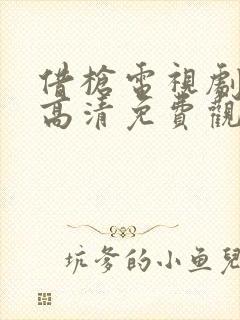 借槍電視劇
高清免費觀
坑爹的小鱼兒